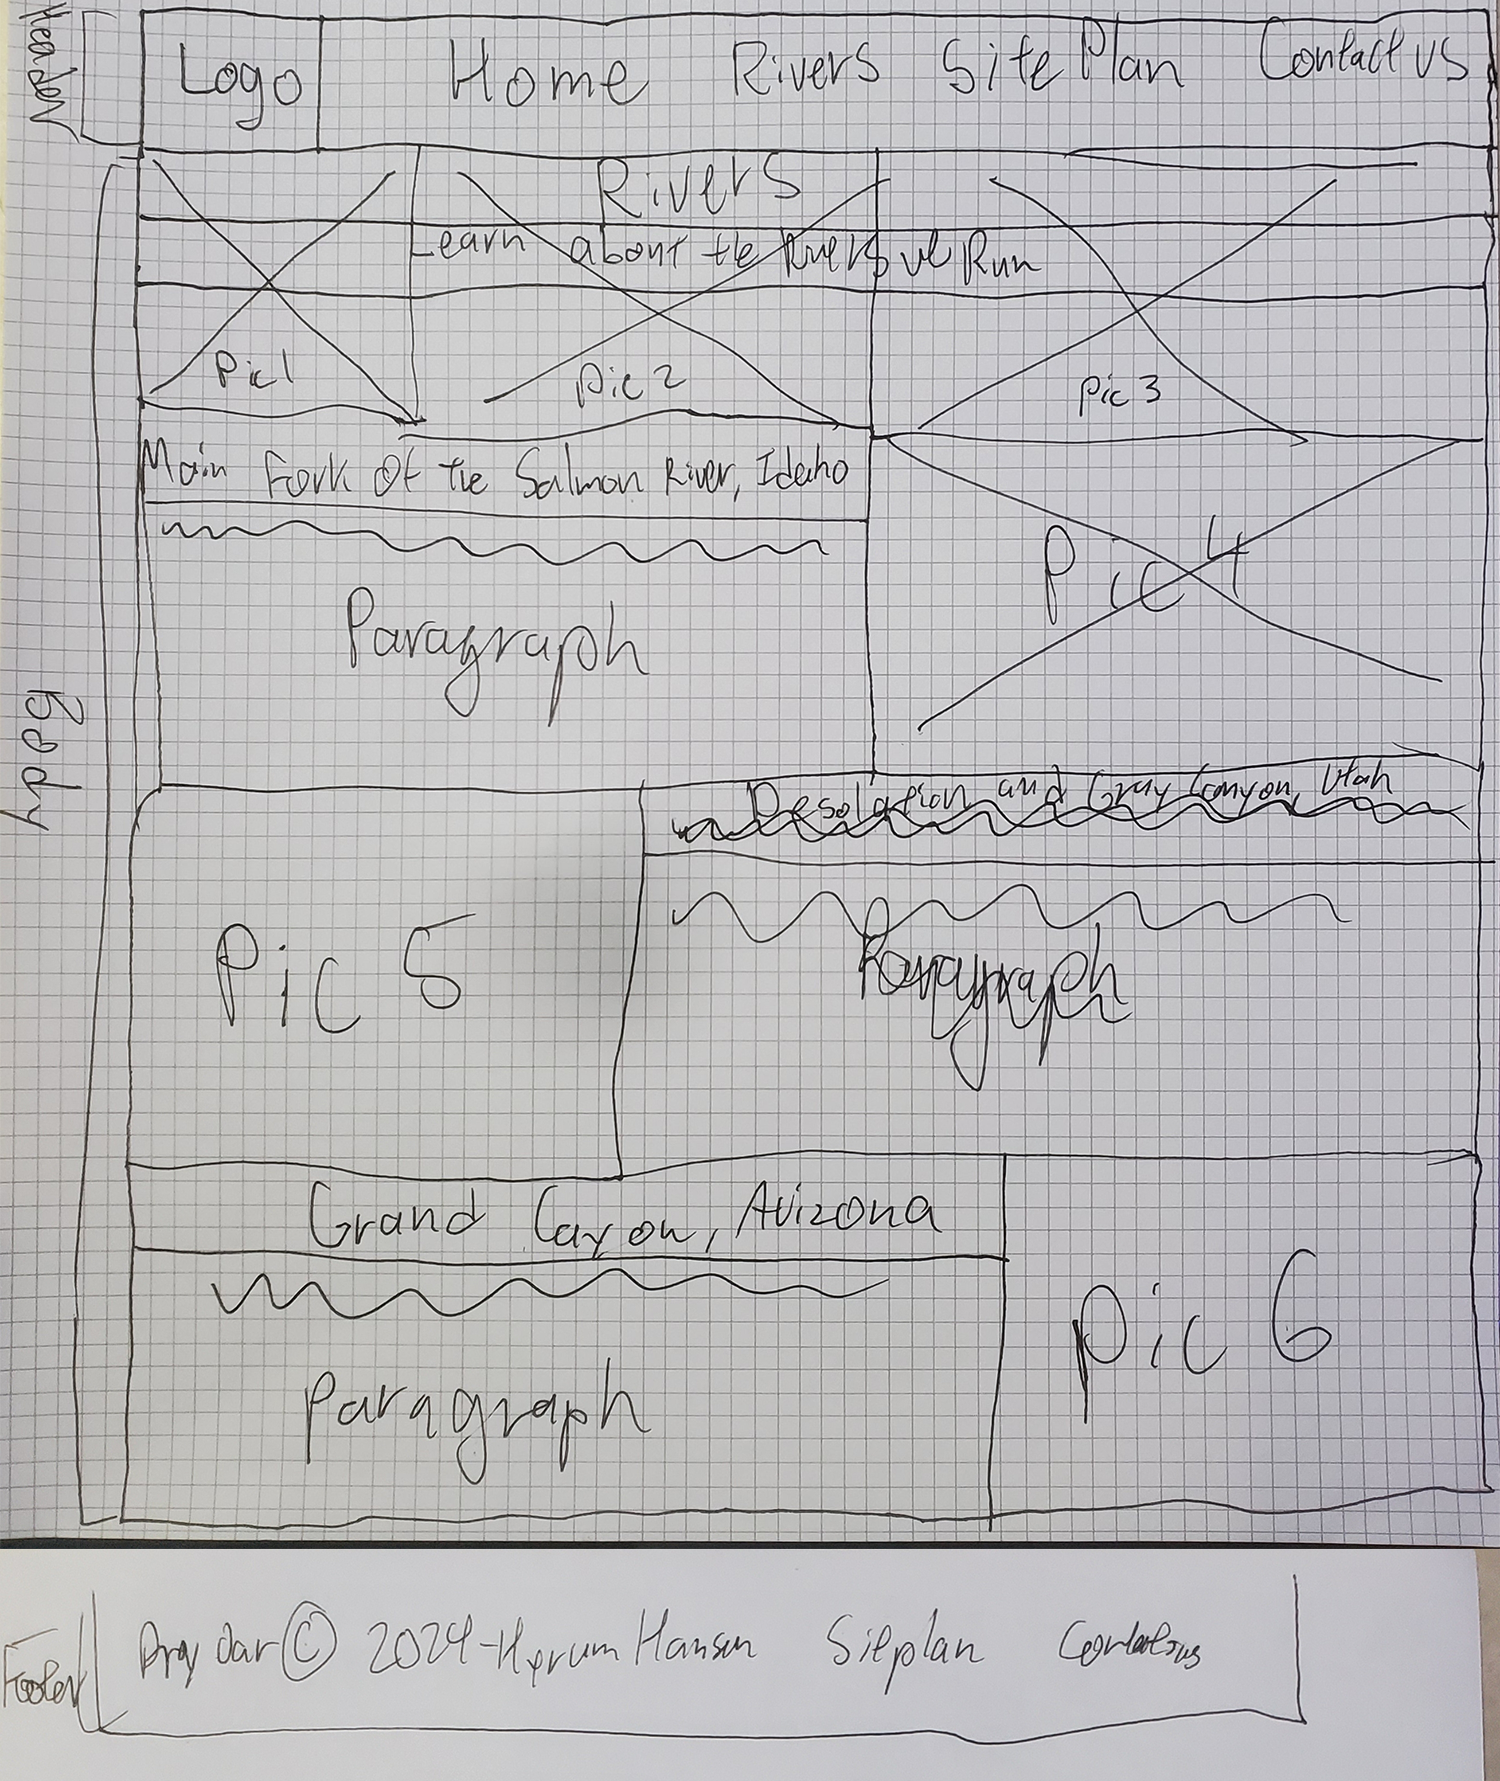 Header
Logo Home Rivers Site Plan Contact us
Rivers
Learn about the Rivers we Run
Pic 1 Pic 2 Pic 3
Main Fork Of the Salmon River, Idaho
Paragraph
Pic 4
Body
Desolation and Gray Canyon, Utah
Pic 5
Paragraph
Grand Cayon, Arizona
Paragraph
Pic 6
Footer
Dry Oar © 2024 - Hyrum Hansen Siteplan Contact us